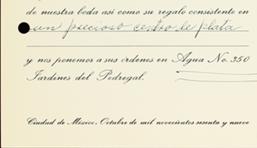 de nuestra boda así como su regalo consistente en
un precioso centro de plata
y nos ponemos a sus ordenes en Agua No. 350
Jardines del Pedregal.
Ciudad de México, Octubre de mil novecientos sesenta y nueve